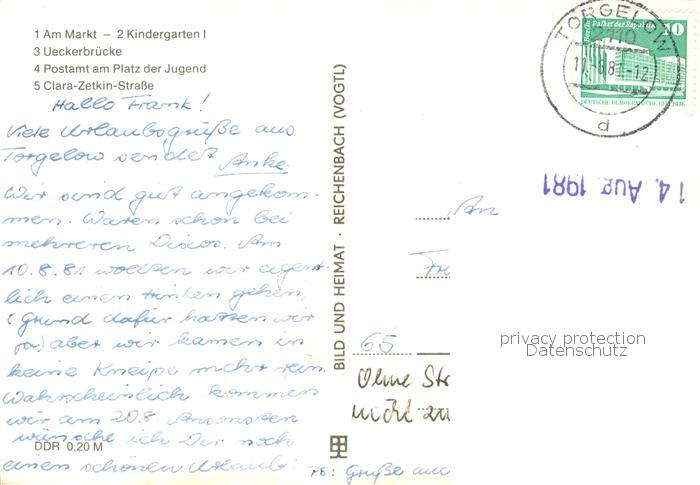 1 Am Markt – 2 Kindergarten I
3 Ueckerbrücke
4 Postamt am Platz der Jugend
5 Clara-Zetkin-Straße
Hallo Frank!
Viele Urlaubsgrüße aus
Torgelow sendet Anke.
Wir sind gut angekom-
men. Waren schon bei
mehreren Discos. Am
10.8.81 wollten wir eigent-
lich einen trinken gehen,
(Grund dafür hatten wir
ja) aber wir kamen in
keine Kneipe mehr rein.
Wahrscheinlich kommen
wir am 20.8. Ansonsten
wünsche ich Dir noch
DDR 0,20 M
einen schönen Urlaub.
PS: Grüße auch
BILD UND HEIMAT · REICHENBACH (VOGTL)
TORGELOW
2110
d
Berlin, Palast der Republik
10
DEUTSCHE DEMOKRATISCHE REPUBLIK
14. AUG. 1981
An
65
Ohne
privacy protection
Datenschutz